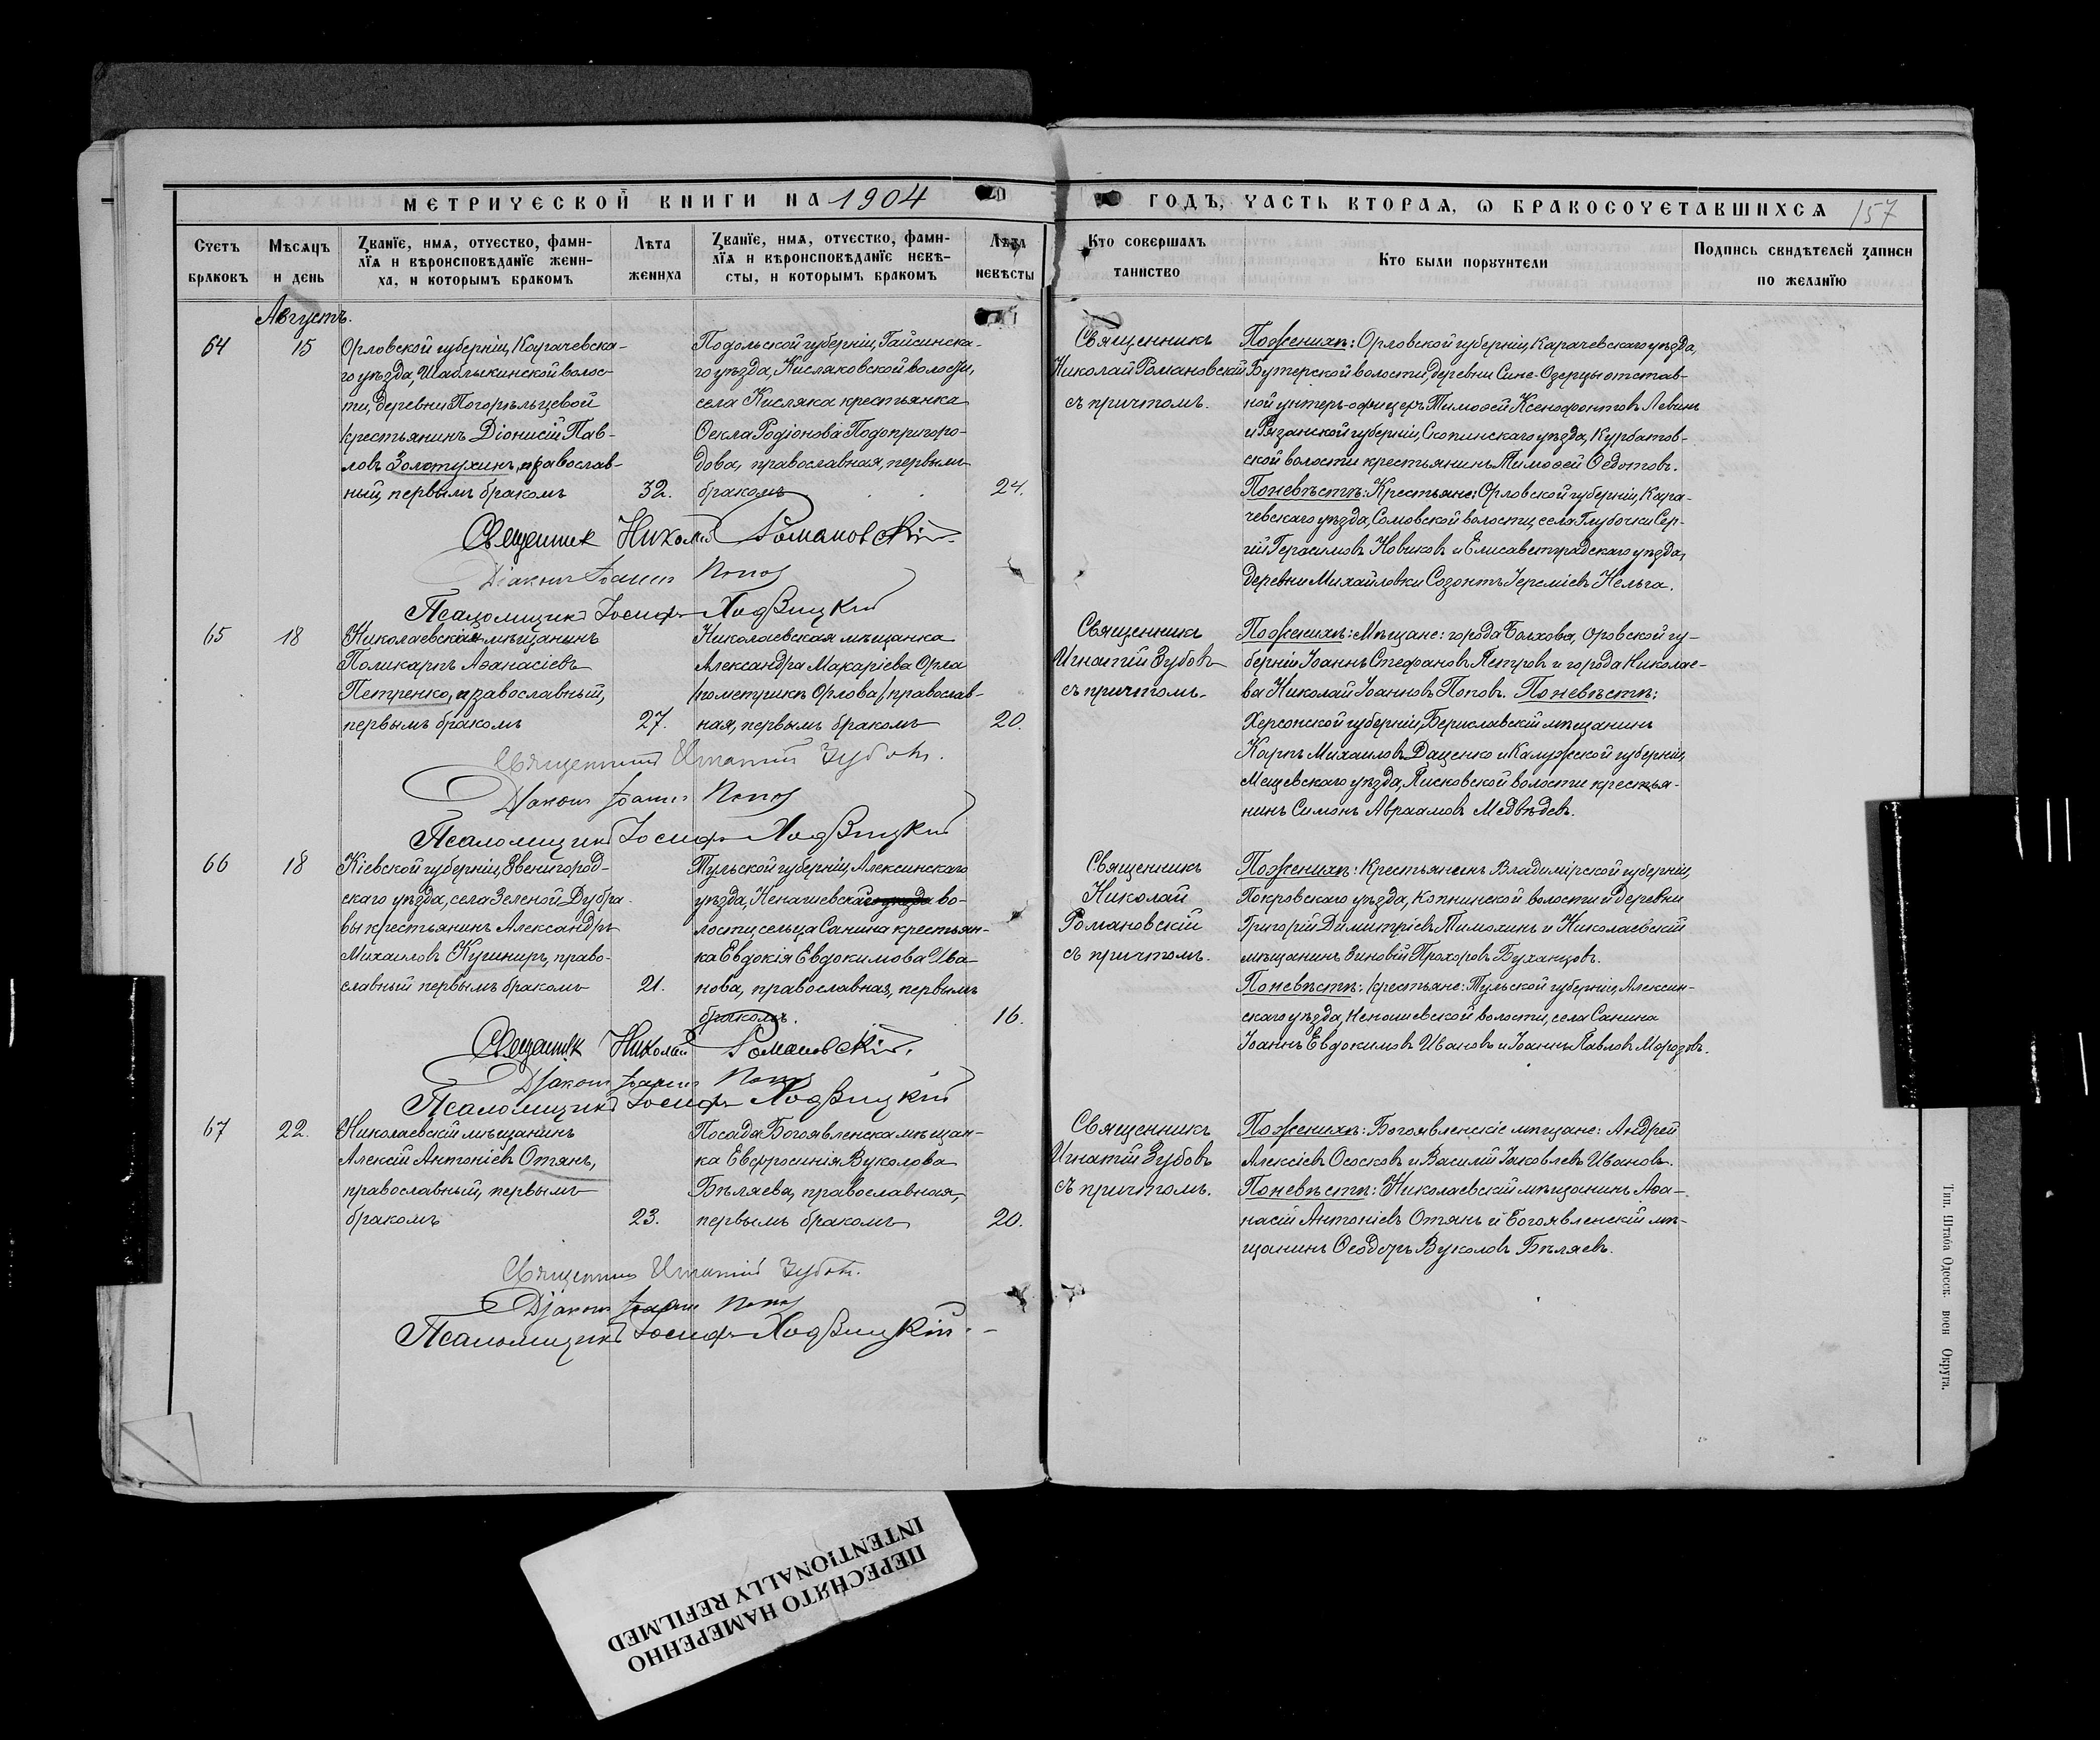 МЕТРИЧЕСКОЙ КНИГИ НА 1904
ГОДЪ, ЧАСТЬ ВТОРАѦ, Ѡ БРАКОСОЧЕТАВШИХСѦ
157
Счетъ браковъ
Мѣсѧцъ и день
Званїе, имѧ, отчество, фами-
лїѧ и вѣроисповѣданїе жени-
ха, и которымъ бракомъ
Лѣта жениха
Званїе, имѧ, отчество, фами-
лїѧ и вѣроисповѣданїе невѣ-
сты, и которымъ бракомъ
Лѣта невѣсты
Кто совершалъ таинство
Кто были поручители
Подпись свидѣтелей записи
по желанїю
Августъ.
64
15
Орловской губерніи, Карачевска-
го уѣзда, Шаблыкинской волос-
ти, деревни Погорѣльцевой
крестьянинъ Діонисій Пав-
ловъ Золотухинъ, православ-
ный, первымъ бракомъ
32.
Подольской губерніи, Гайсинска-
го уѣзда, Кисляковской волости,
села Кисляка крестьянка
Ѳекла Родіонова Подопригоро-
дова, православная, первымъ
бракомъ
24.
Священникъ
Николай Романовскій
съ причтомъ.
По женихѣ: Орловской губерніи, Карачевскаго уѣзда,
Бутерской волости, деревни Сине-Озерцы отстав-
ной унтеръ-офицеръ Тимоѳей Ксенофонтовъ Левинъ
и Рязанской губерніи, Скопинскаго уѣзда, Курбатов-
ской волости крестьянинъ Тимоѳей Ѳедотовъ.
По невѣстѣ: Крестьяне: Орловской губерніи, Кара-
чевскаго уѣзда, Сомовской волости, села Глубочки Сер-
гій Герасимовъ Новиковъ и Елисаветградскаго уѣзда,
деревни Михайловки Созонтъ Іереміевъ Кельга.
Священник Николай Романовскій.
Діаконъ Іоаннъ Попов
Псаломщикъ Іосифъ Ходвицкій
65
18
Николаевскій мѣщанинъ
Поликарпъ Аѳанасіевъ
Петренко, православный,
первымъ бракомъ
27.
Николаевская мѣщанка
Александра Макаріева Орла
/по метрикѣ Орлова/ православ-
ная, первымъ бракомъ
20.
Священникъ
Игнатій Зубовъ
съ причтомъ.
По женихѣ: Мѣщане: города Болхова, Оровской гу-
берніи Іоаннъ Стефановъ Петровъ и города Николае-
ва Николай Іоанновъ Поповъ. По невѣстѣ:
Херсонской губерніи, Бериславскій мѣщанинъ
Карпъ Михаиловъ Даценко и Калужской губерніи,
Мещевскаго уѣзда, Писковской волости крестья-
нинъ Симонъ Авраамовъ Медвѣдевъ.
Священникъ Игнатій Зубовъ.
Діаконъ Іоаннъ Попов
Псаломщикъ Іосифъ Ходвицкій
66
18
Кіевской губерніи, Звенигород-
скаго уѣзда, села Зеленой-Дубра-
вы крестьянинъ Александръ
Михаиловъ Кушниръ, право-
славный первымъ бракомъ
21.
Тульской губерніи, Алексинскаго
уѣзда, Ненашевской во-
лости, сельца Санина крестьян-
ка Евдокія Евдокимова Ива-
нова, православная, первымъ
бракомъ.
16.
Священникъ
Николай
Романовскій
съ причтомъ.
По женихѣ: Крестьянинъ Владимірской губерніи,
Покровскаго уѣзда, Копнинской волости и деревни
Григорій Димитріевъ Тимохинъ и Николаевскій
мѣщанинъ Зиновій Прохоровъ Буханцовъ.
По невѣстѣ: Крестьяне: Тульской губерніи, Алексин-
скаго уѣзда, Неношевской волости, села Санина
Іоаннъ Евдокимовъ Ивановъ и Іоаннъ Павловъ Морозовъ.
Священник Николай Романовскій.
Діаконъ Іоаннъ Попов
Псаломщикъ Іосифъ Ходвицкій
67
22.
Николаевскій мѣщанинъ
Алексій Антоніевъ Отянъ,
православный, первымъ
бракомъ
23.
Посада Богоявленска мѣщан-
ка Евфросинія Вуколова
Бѣляева, православная,
первымъ бракомъ
20.
Священникъ
Игнатій Зубовъ
съ причтомъ.
По женихѣ: Богоявленскіе мѣщане: Андрей
Алексіевъ Ососковъ и Василій Іаковлевъ Ивановъ.
По невѣстѣ: Николаевскій мѣщанинъ Аѳа-
насій Антоніевъ Отянъ и Богоявленскій мѣ-
щанинъ Ѳеодоръ Вуколовъ Бѣляевъ.
Священникъ Игнатій Зубовъ.
Діаконъ Іоаннъ Попов
Псаломщикъ Іосифъ Ходвицкій.
Тип. Штаба Одесск. воен. Округа.
ПЕРЕСНЯТО НАМЕРЕННО
INTENTIONALLY REFILMED